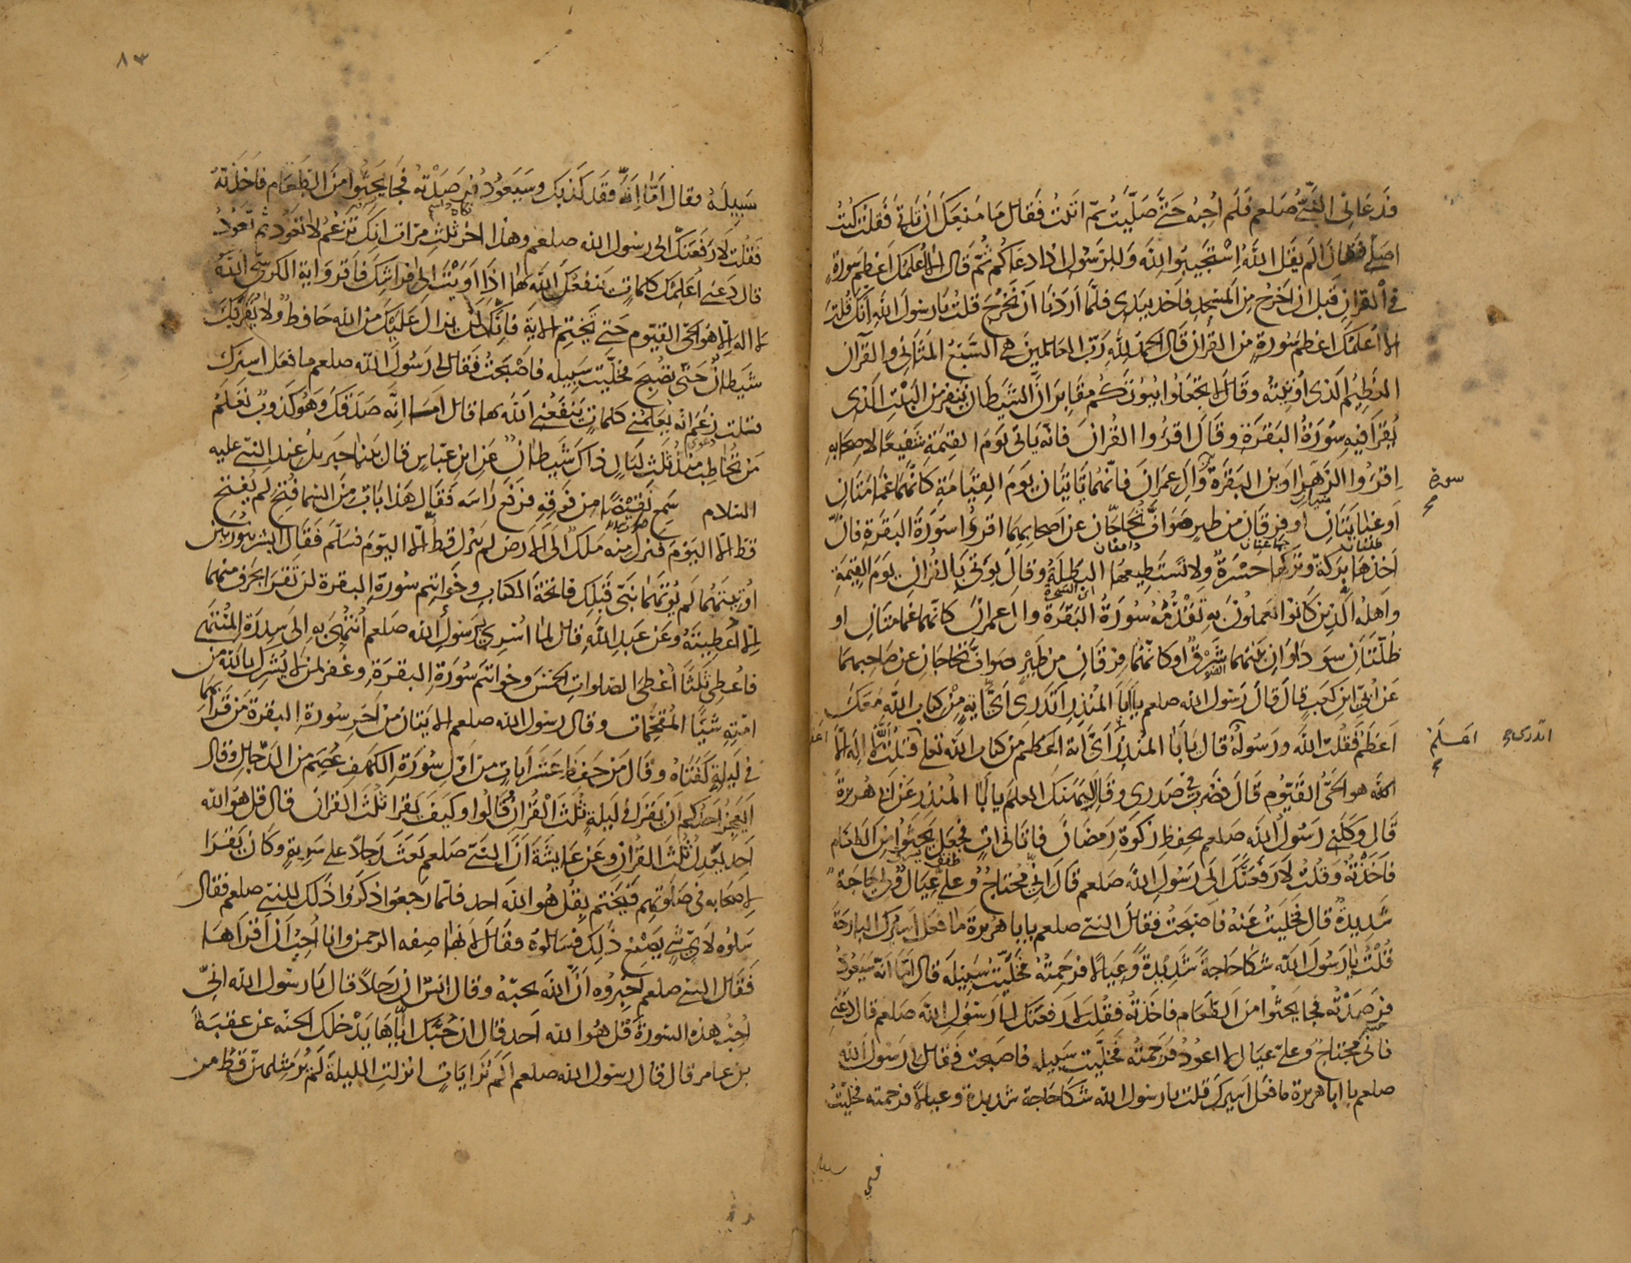 فدعانى النبى صلعم فلم اجبه حتى صليت ثم اتيت فقال ما منعك ان تاتى فقلت كنت
اصلى فقال الم يقل الله استجيبوا لله وللرسول اذا دعاكم ثم قال الا اعلمك اعظم سورة
فى القران قبل ان اخرج من المسجد فاخذ بيدى فلما اردنا ان نخرج قلت يا رسول الله انك قلت
الا اعلمك اعظم سورة من القران قال الحمد لله رب العالمين هى السبع المثانى والقرآن
العظيم الذى اوتيته وقال لا تجعلوا بيوتكم مقابر ان الشيطان ينفر من البيت الذى
يقرا فيه سورة البقرة وقال اقرءوا القران فانه ياتى يوم القيمة شفيعا لاصحابه
اقرءوا الزهراوين البقرة وال عمران فانهما تاتيان يوم القيامة كانهما غمامتان
سورة
او غيايتان او فرقان من طير صواف تحاجان عن اصحابهما اقرءوا سورة البقرة فان
اخذها بركة وتركها حسرة ولا تستطيعها البطلة وقال يوتى بالقران يوم القيمة
واهله الذين كانوا يعملون به تقدمه سورة البقرة وال عمران كانهما غمامتان او
ظلتان سوداوان بينهما شرق او كانهما فرقان من طير صواف تحاجان عن صاحبهما
عن ابى ابن كعب قال قال رسول الله صلعم يا ابا المنذر اتدرى اى اية من كتاب الله معك
اعظم فقلت الله ورسوله قال يا ابا المنذر اى اية اعظم من كتاب الله تعلى قلت الله لا اله الا
اتدرى اعلم
هو الحى القيوم قال فضرب فى صدرى وقال ليهنك العلم يا ابا المنذر عن ابى هريرة
قال وكلنى رسول الله صلعم بحفظ زكوة رمضان فاتانى ات فجعل يحثوا من الطعام
فاخذته وقلت لارفعنك الى رسول الله صلعم قال انى محتاج وعلى عيال ولى حاجة
شديدة قال فخليت عنه فاصبحت فقال النبى صلعم يا با هريرة ما فعل اسيرك البارحة
قلت يا رسول الله شكا حاجة شديدة وعيالا فرحمته فخليت سبيله قال اما انه سيعود
فرصدته فجا يحثوا من الطعام فاخذته فقلت لارفعنك الى رسول الله صلعم قال دعنى
فانى محتاج وعلى عيال لا اعود فرحمته فخليت سبيله فاصبحت فقال لى رسول الله
صلعم يا ابا هريرة ما فعل اسيرك قلت يا رسول الله شكا حاجة شديدة وعيالا فرحمته فخليت
٨٣
سبيله فقال اما انه فقد كذبك وسيعود فرصدته فجا يحثوا من الطعام فاخذته
فقلت لارفعنك الى رسول الله صلعم وهذا اخر ثلث مرات انك تزعم لا تعود ثم تعود
قال دعنى اعلمك كلمات ينفعك الله بها اذا اويت الى فراشك فاقروا اية الكرسى الله
لا اله الا هو الحى القيوم حتى تختم الاية فانك لن يزال عليك من الله حافظ ولا يقربك
شيطان حتى تصبح فخليت سبيله فاصبحت فقال لى رسول الله صلعم ما فعل اسيرك
قلت زعم انه يعلمنى كلمات ينفعنى الله بها قال اما انه صدقك وهو كذوب تعلم
من تخاطب منذ ثلث ليال ذاك شيطان عن ابن عباس قال بينا جبريل عند النبى عليه
السلام سمع نقيضا من فوقه فرفع راسه فقال هذا باب من السما فتح لم يفتح
قط الا اليوم فنزل منه ملك الى الارض لم ينزل قط الا اليوم فسلم فقال ابشر بنورين
اوتيتهما لم يوتهما نبى قبلك فاتحة الكتاب وخواتيم سورة البقرة لن تقرا بحرف منهما
الا اعطيته وعن عبد الله قال لما اسرى برسول الله صلعم انتهى به الى سدرة المنتهى
فاعطى ثلثا اعطى الصلوات الخمس وخواتيم سورة البقرة وغفر لمن لا يشرك بالله من
امته شيئا المقحمات وقال رسول الله صلعم الايتان من اخر سورة البقرة من قراهما
فى ليلة كفتاه وقال من حفظ عشر ايات من اول سورة الكهف عصم من الدجال وقال
ايعجز احدكم ان يقرا فى ليلة ثلث القران قالوا وكيف يقرا ثلث القران قال قل هو الله
احد يعدل ثلث القران وعن عايشة ان النبى صلعم بعث رجلا على سرية وكان يقرا
لاصحابه فى صلوتهم فيختم بقل هو الله احد فلما رجعوا ذكروا ذلك للنبى صلعم فقال
سلوه لاى شى يصنع ذلك فسالوه وقال لانها صفه الرحمن وانا احب ان اقراها
فقال النبى صلعم اخبروه ان الله يحبه وقال انس ان رجلا قال يا رسول الله انى
احب هذه السورة قل هو الله احد قال ان حبك اياها يدخلك الجنه عن عقبة
بن عامر قال قال رسول الله صلعم الم تر ايات انزلت الليلة لم ير مثلهن قط من